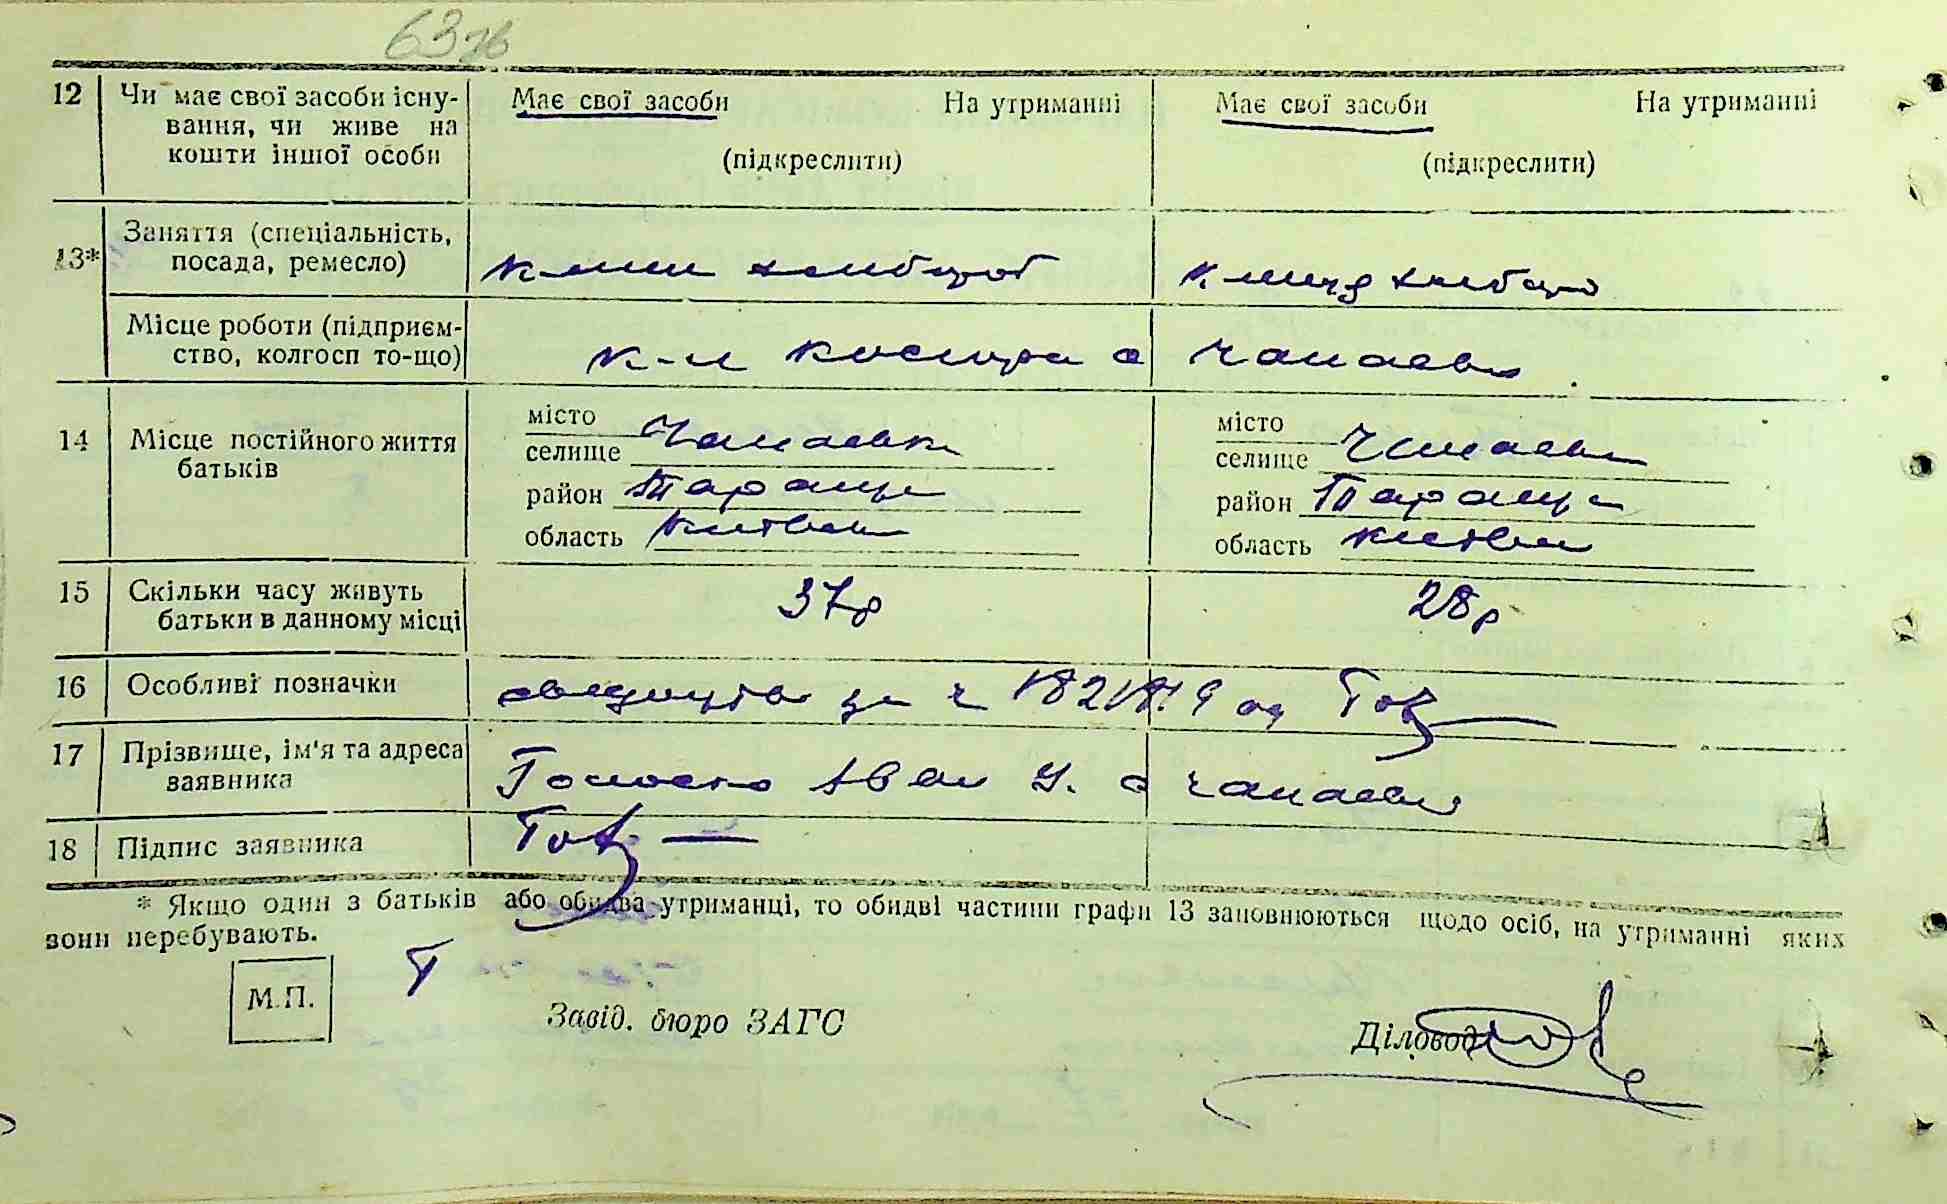 63зв
12 Чи має свої засоби існу- Має свої засоби На утриманні Має свої засоби На утриманні
вання, чи живе на
кошти іншої особи (підкреслити) (підкреслити)
13* Заняття (спеціальність,
посада, ремесло)
Місце роботи (підприєм-
ство, колгосп то-що) к-п Косиора с Чапаевка
14 Місце постійного життя батьків
місто
селище Чапаевка
район Тараща
область Киівськ
місто
селище Чапаевка
район Тараща
область Киівськ
15 Скільки часу живуть 37р 28р
батьки в данному місці
16 Особливі позначки за ч 182
17 Прізвище, ім'я та адреса
заявника Іван с Чапаевка
18 Підпис заявника
* Якщо один з батьків або обидва утриманці, то обидві частини графи 13 заповнюються щодо осіб, на утриманні яких
вони перебувають.
М.П. Завід. бюро ЗАГС Діловод